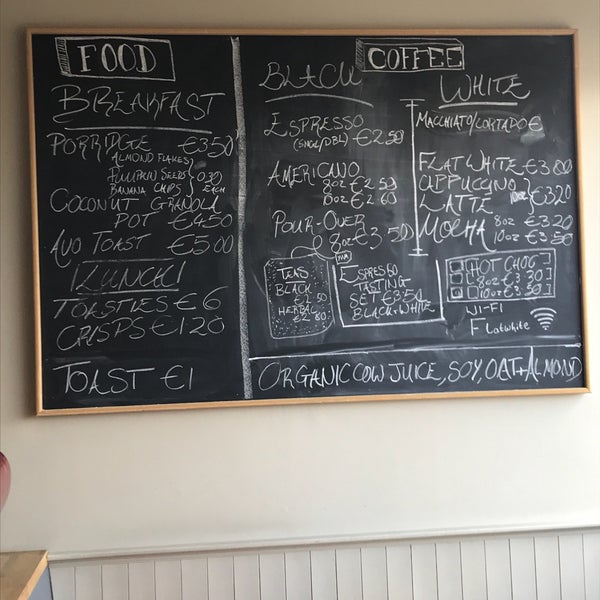 FOOD
BREAKFAST
PORRIDGE €3.50
ALMOND FLAKES
PUMPKIN SEEDS
BANANA CHIPS
0.30
EACH
COCONUT GRANOLA
POT €4.50
AVO TOAST €5.00
LUNCH!
TOASTIES €6
CRISPS €1.20
TOAST €1
COFFEE
BLACK
ESPRESSO
(SNGL/DBL) €2.50
AMERICANO
8oz €2.50
10oz €2.60
POUR-OVER
8oz €3.50
TEAS
BLACK
€2.50
HERBAL
€2.80
ESPRESSO
TASTING
SET €3.50
BLACK+WHITE
WHITE
MACCHIATO/CORTADO €
FLAT WHITE €3.00
CAPPUCCINO
LATTE 10oz €3.20
MOCHA 8oz €3.20
10oz €3.50
HOT CHOC
8oz €3.30
10oz €3.50
WI-FI
Flatwhite
ORGANIC COW JUICE, SOY, OAT+ALMOND